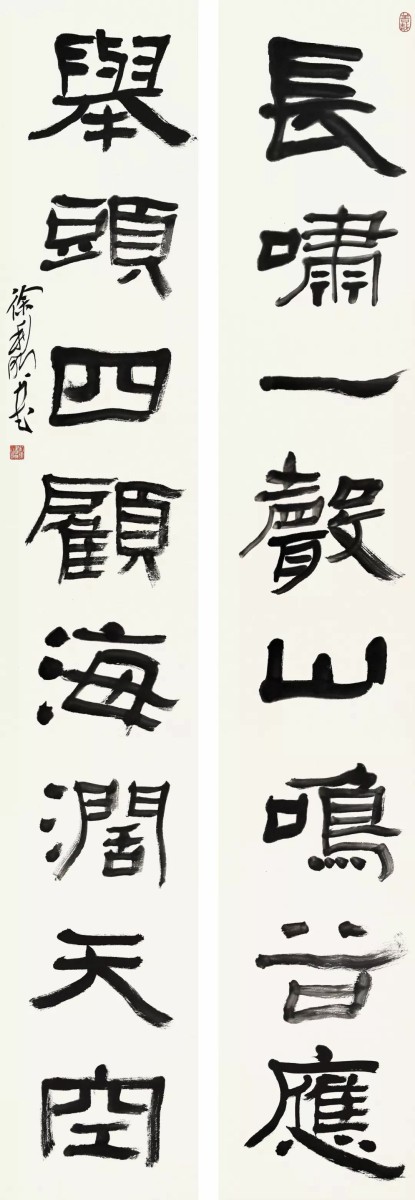 長嘯一聲山鳴谷應
舉頭四顧海濶天空
徐利明書